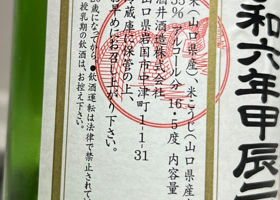 和六年甲辰二
米(山口県産)、米こうじ(山口県産
55% アルコール分 16.5度 内容量
酒井酒造株式会社
山口県岩国市中津町1-1-31
冷蔵で保管の上、
お早めにお召し上がり下さい。
歳になってから●飲酒運転は法律で禁止されてい
授乳期の飲酒は、お控え下さい。